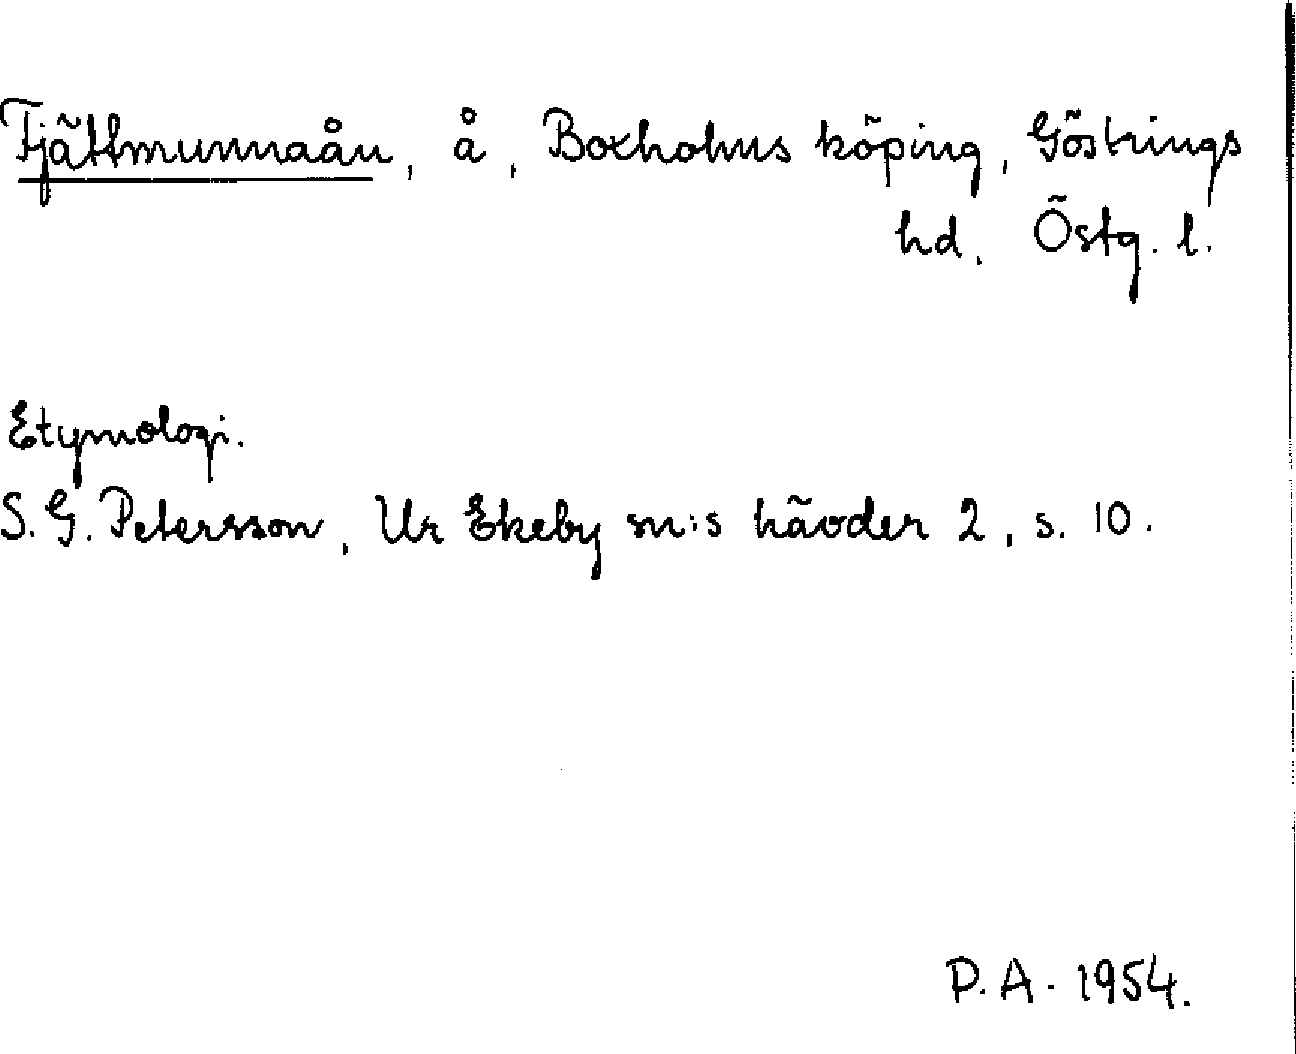 Fjättmunnaån, å, Boxholms köping, Göstrings
hd. Östg. l.
Etymologi.
S. G. Petersson, Ur Ekeby sn:s hävder 2, s. 10.
P. A. 1954.